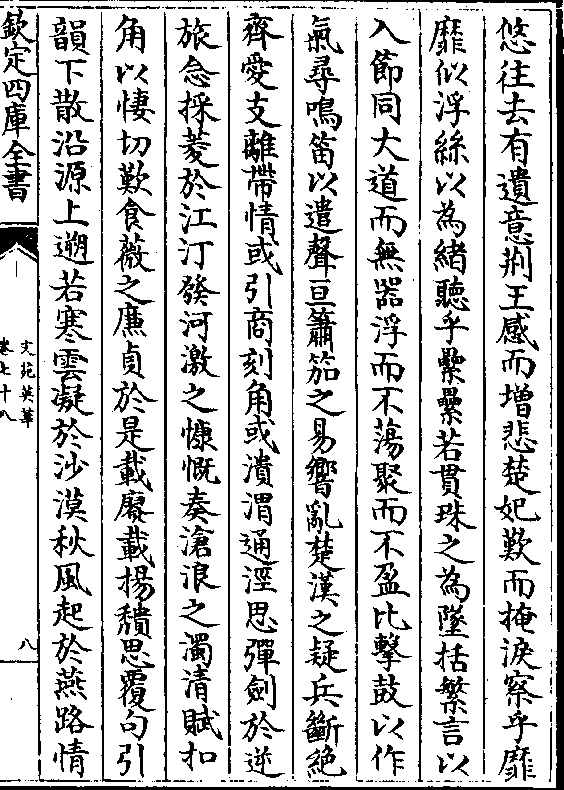 悠往去有遺意荆王感而增悲楚妃歎而掩淚察乎靡
靡似浮絲以為緒聽乎纍纍若貫珠之為墜括繁言以
入節同大道而無器浮而不蕩聚而不盈比擊鼓以作
氣尋鳴笛以遣聲亘簫笳之易響亂楚漢之疑兵斷絶
齊愛支離帶情或引商刻角或潰渭通涇思彈劍於逆
旅念採菱於江汀發河激之慷慨奏滄浪之濁清賦扣
角以悽切歎食薇之廉貞於是載賡載揚積思覆句引
韻下散沿源上遡若寒雲凝於沙漠秋風起於燕路情
欽定四庫全書
文苑英華
卷七十八
八